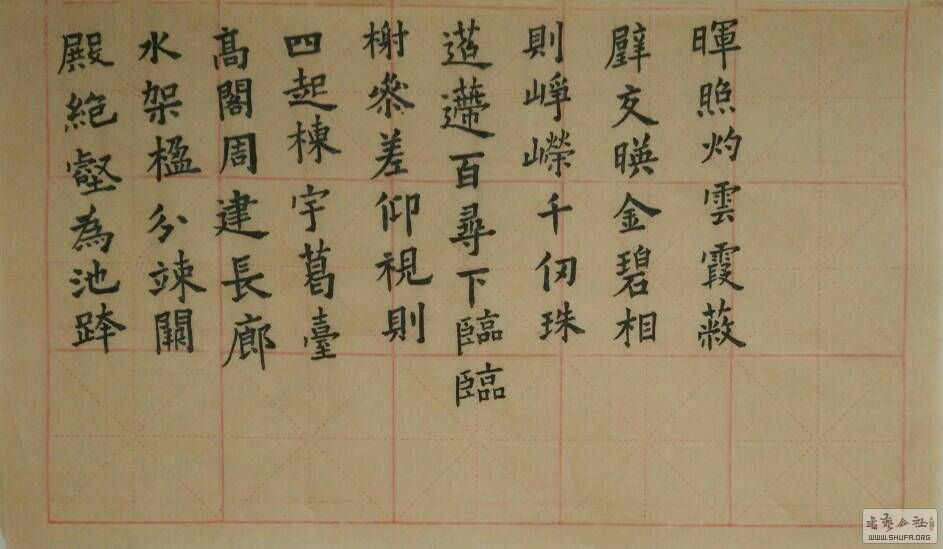 殿絕壑為池跨
水架楹分竦闕
高閣周建長廊
四起棟宇葛臺
榭參差仰視則
迢遰百尋下臨臨
則崢嶸千仞珠
璧交暎金碧相
暉照灼雲霞蔽
书法公社
WWW.SHUFA.ORG